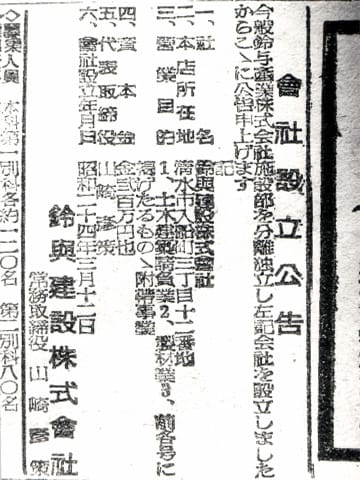 會社設立公告
今般鈴与産業株式会社施設部を分離独立し左記会社を設立しました
からこゝに公告申上げます
記
一、社名 鈴與建設株式會社
二、本店所在地 清水市入船町三丁目十二番地
三、営業目的 1、土木建築請負業2、製材業3、前各号に
掲げたるものゝ附帯事業
四、資本金 金弐百万円也
五、代表取締役 山崎彦策
六、會社設立年月日 昭和二十四年三月十二日
鈴與建設株式會社
常務取締役 山崎彦策
本科第一別科各約一二〇名 第二別科八〇名